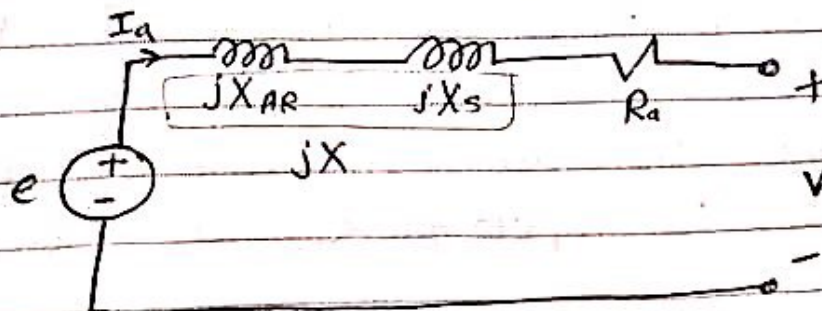 Ia
jXAR jXs Ra +
jX
+
e V
-
-